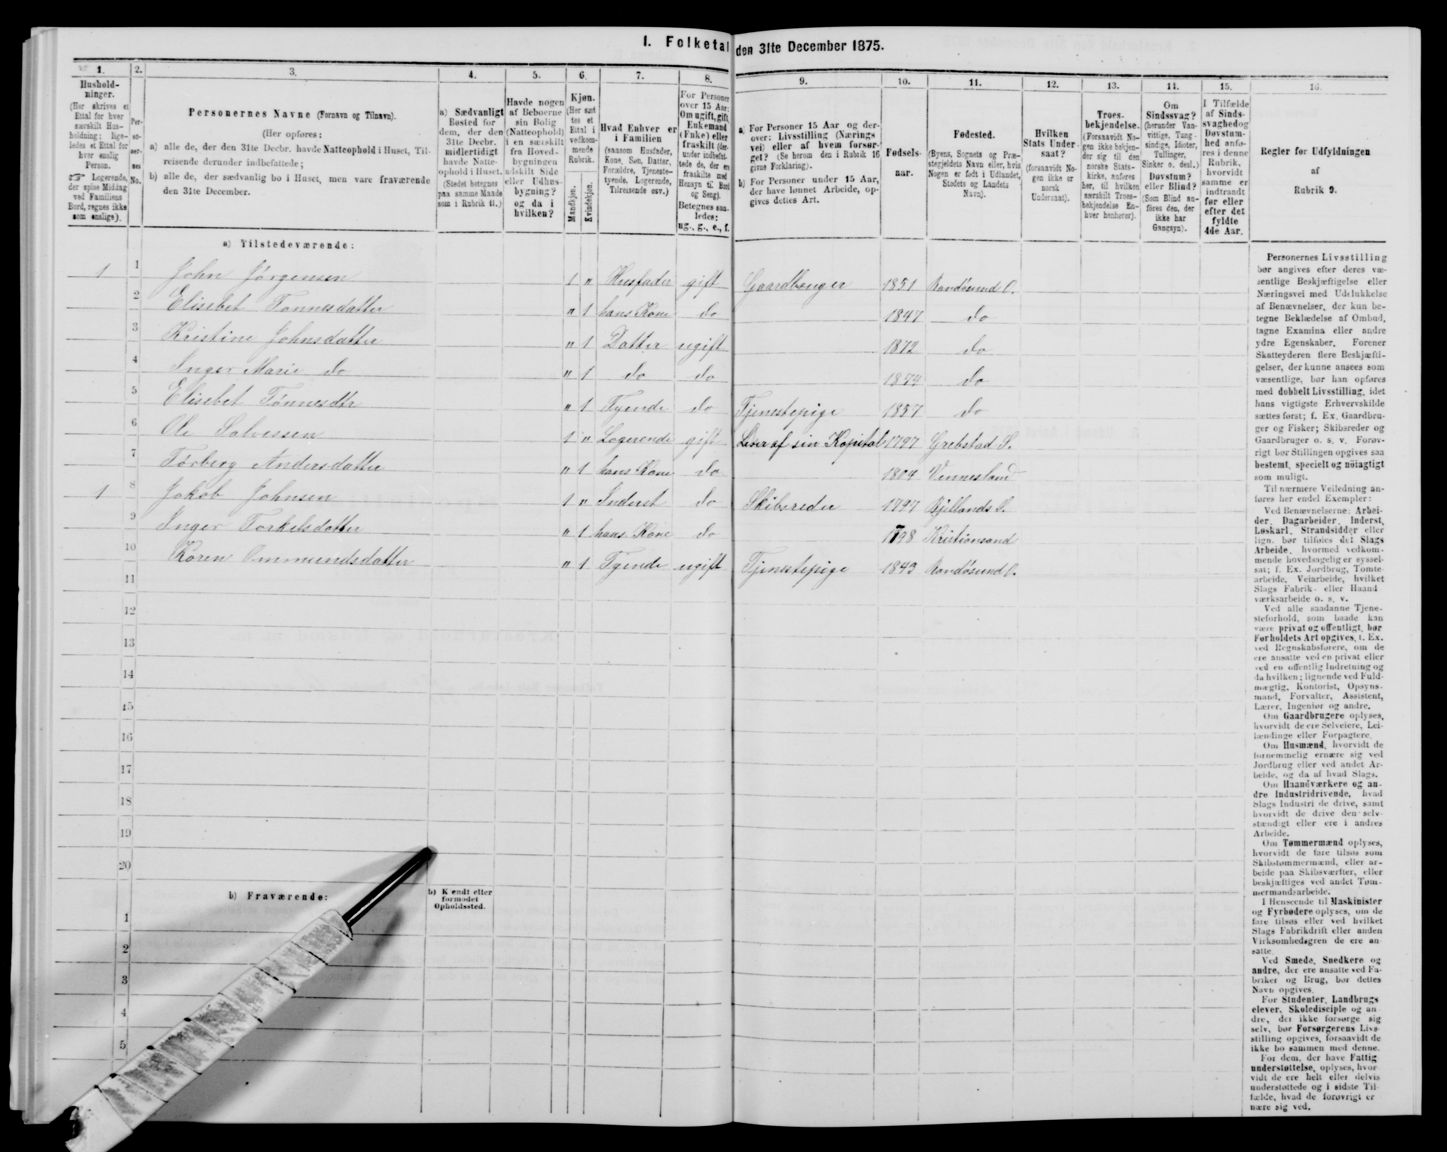 I. Folketal den 31te December 1875.
1.
Hushold-
ninger.
(Her skrives et
Ettal for hver
særskilt Hus-
holdning; lige-
ledes et Ettal for
hver enslig
Person.
☞ Logerende,
der spise Middag
ved Familiens
Bord, regnes ikke
som enslige).
2.
Per-
so-
ner-
nes
No.
3.
Personernes Navne (Fornavn og Tilnavn).
(Her opføres:
a) alle de, der den 31te Decbr. havde Natteophold i Huset, Til-
reisende derunder indbefattede;
b) alle de, der sædvanlig bo i Huset, men vare fraværende
den 31te December.
4.
a) Sædvanligt
Bosted for
dem, der den
31te Decbr.
midlertidigt
havde Natte-
ophold i Huset.
(Stedet betegnes
paa samme Maade
som i Rubrik 11.)
5.
Havde nogen
af Beboerne
sin Bolig
(Natteophold)
i en særskilt
fra Hoved-
bygningen
adskilt Side
eller Udhus-
bygning?
og da i
hvilken?
6.
Kjøn.
(Her sæt
tes et
Ettal i
vedkom-
mende
Rubrik.
Mandkjøn.
Kvindekjøn.
7.
Hvad Enhver er
i Familien
(saasom Husfader,
Kone, Søn, Datter,
Forældre, Tjeneste-
tyende, Logerende,
Tilreisende osv.)
8.
For Personer
over 15 Aar:
Om ugift, gift,
Enkemand
(Enke) eller
fraskilt (der-
under indbefat-
tede de, der ere
fraskilte med
Hensyn til Bord
og Seng).
Betegnes saa-
ledes:
ug., g., e., f.
9.
a) For Personer 15 Aar og der-
over: Livsstilling (Nærings
vei) eller af hvem forsør-
get? (Se herom den i Rubrik 16
givne Forklaring).
b) For Personer under 15 Aar,
der have lønnet Arbeide, op-
gives dettes Art.
10.
Fødsels-
aar.
11.
Fødested.
(Byens, Sognets og Præ-
stegjeldets Navn eller, hvis
Nogen er født i Udlandet,
Stedets og Landets
Navn).
12.
Hvilken
Stats Under-
saat?
(forsaavidt No-
gen ikke er
norsk
Undersaat).
13.
Troes-
bekjendelse.
(Forsaavidt No-
gen ikke bekjen-
der sig til den
norske Stats-
kirke, anføres
her, til hvilken
særskilt Troes-
bekjendelse En-
hver henhører).
14.
Om
Sindssvag?
(herunder Van-
vittige, Tung-
sindige, Idioter,
Tullinger,
Sinker o. desl.)
Døvstum?
eller Blind?
(Som Blind an-
føres den, der
ikke har
Gangsyn).
15.
I Tilfælde
af Sinds-
svaghed og
Døvstum-
hed anfø-
res i denne
Rubrik,
hvorvidt
samme er
indtraadt
før eller
efter det
fyldte
4de Aar.
16.
Regler for Udfyldningen
af
Rubrik 9.
a) Tilstedeværende:
1 1 John Jörgensen 1 " Husfader gift Gaardbruger 1851 Randösund O.
2 Elisebet Tönnesdatter " 1 hans Kone do 1847 do
3 Kristine Johnsdatter " 1 Datter ugift 1872 do
4 Inger Marie do " 1 do do 1874 do
5 Elisebet Tönnesdtr " 1 Tyende do Tjenestepige 1857 do
6 Ole Salvesen 1 " Logerende gift Lever af sin Kapital 1797 Grebstad S.
7 Törberg Andersdatter " 1 hans Kone do 1804 Vennesland
1 8 Jakob Johnsen 1 " Inderst do Skibsreder 1797 Bjellands S.
9 Inger Torkelsdatter " 1 hans Kone do 1798 Kristiansand
10 Karen Ommundsdatter " 1 Tyende ugift Tjenestepige 1843 Randösund O.
11
12
13
14
15
16
17
18
19
20
b) Fraværende:
b) Kjendt eller
formodet
Opholdssted.
1
2
3
4
5
Personernes Livsstilling
bør angives efter deres væ-
sentlige Beskjæftigelse eller
Næringsvei med Udelukkelse
af Benævnelser, der kun be-
tegne Beklædelse af Ombud,
tagne Examina eller andre
ydre Egenskaber. Forener
Skatteyderen flere Beskjæfti-
gelser, der kunne ansees som
væsentlige, bør han opføres
med dobbelt Livsstilling, idet
hans vigtigste Erhvervskilde
sættes først; f. Ex. Gaardbru-
ger og Fisker; Skibsreder og
Gaardbruger o. s. v. Forøv-
rigt bør Stillingen opgives saa
bestemt, specielt og nøiagtigt
som muligt.
Til nærmere Veiledning an-
føres her endel Exempler:
Ved Benævnelserne: Arbei-
der, Dagarbeider, Inderst,
Løskarl, Strandsidder eller
lign. bør tilføies det Slags
Arbeide, hvormed vedkom-
mende hovedsagelig er syssel-
sat; f. Ex. Jordbrug, Tomte-
arbeide, Veiarbeide, hvilket
Slags Fabrik- eller Haand
værksarbeide o. s. v.
Ved alle saadanne Tjene-
steforhold, som baade kan
være privat og offentligt, bør
Forholdets Art opgives, f. Ex.
ved Regnskabsførere, om de
ere ansatte ved en privat eller
ved en offentlig Indretning og
da hvilken; lignende ved Fuld-
mægtig, Kontorist, Opsyns-
mand, Forvalter, Assistent,
Lærer, Ingeniør og andre.
Om Gaardbrugere oplyses,
hvorvidt de ere Selveiere, Lei-
lændinge eller Forpagtere.
Om Husmænd, hvorvidt de
fornemmelig ernære sig ved
Jordbrug eller ved andet Ar-
beide, og da af hvad Slags.
Om Haandværkere og an-
dre Industridrivende, hvad
Slags Industri de drive, samt
hvorvidt de drive den selv-
stændigt eller ere i andres
Arbeide.
Om Tømmermænd oplyses,
hvorvidt de fare tilsøs som
Skibstømmermænd, eller ar-
beide paa Skibsværfter, eller
beskjæftiges ved andet Tøm-
mermandsarbeide.
I Henseende til Maskinister
og Fyrbødere oplyses, om de
fare tilsøs eller ved hvilket
Slags Fabrikdrift eller anden
Virksomhedsgren de ere an-
satte.
Ved Smede, Snedkere og
andre, der ere ansatte ved Fa-
briker og Brug, bør dettes
Navn opgives.
For Studenter, Landbrugs
elever, Skoledisciple og an-
dre, der ikke forsørge sig
selv, bør Forsørgerens Livs-
stilling opgives, forsaavidt de
ikke bo sammen med denne.
For dem, der have Fattig
understøttelse, oplyses, hvor
vidt de ere helt eller delvis
understøttede og i sidste Til-
fælde, hvad de forøvrigt er
nære sig ved.